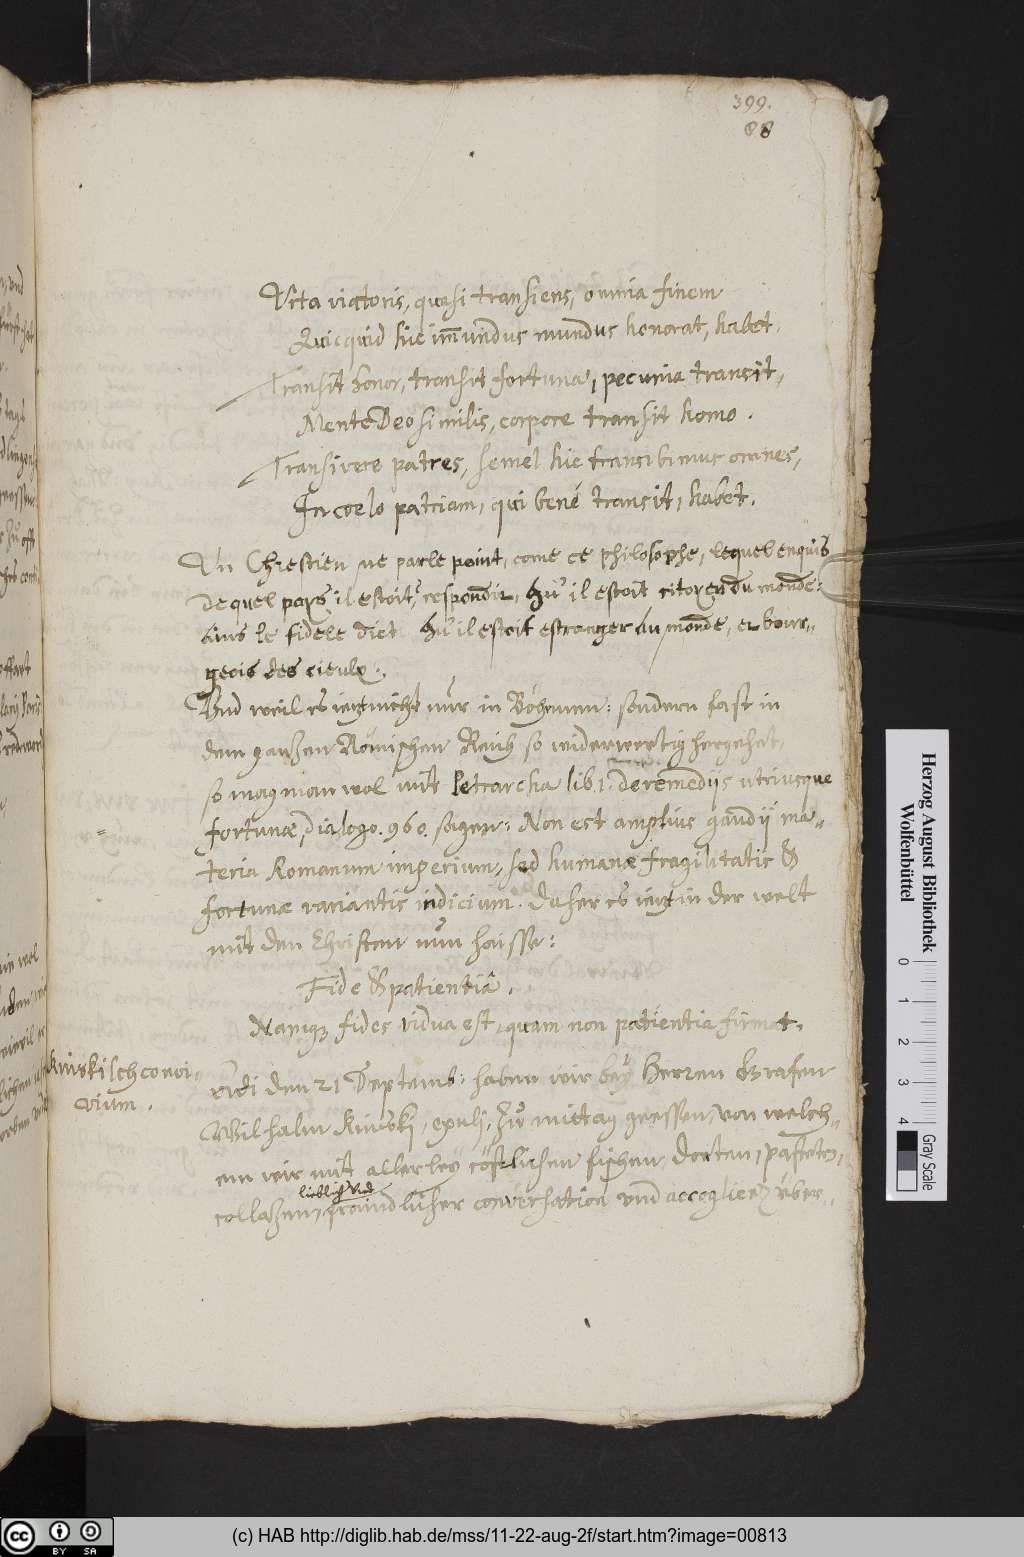 399.
88
Vita victoris, quasi transiens, omnia finem
Quicquid hic im̄undus mundus honorat, habet.
Transit honor, transit fortuna, pecunia transit,
Mente Deo similis, corpore transit homo.
Transivere patres, semel hic transibimus omnes,
In coelo patriam, qui bené transit, habet.
Un Chrestien ne parle point, come ce philosophe, lequel enquis
de quel pays il estoit, respondit, qu'il estoit citoyen du monde:
Ains le fidele dict qu'il estoit estranger du monde, et bour-
geois des cieulx.
Vnd weil es ietzt nicht nur in Böhemen: sondern fast in
dem ganzen Römischen Reich so widerwertig hergehet,
so mag man wol mit Petrarcha lib. 1. de remedijs utriusque
fortunæ, dialogo. 96. sagen: Non est amplius gaudij ma-
teria Romanum imperium, sed humanæ fragilitatis &
fortunæ variantis indicium. Daher es ietzt in der welt
mit den Christen nun haisse:
Fide & patientiâ.
Namq; fides vidua est, quam non patientia firmat.
Kinskisch convi-
vium.
Den 21 Septemb: haben wir bey Herren Grafen
Wilhalm Kinski, exulj, zu mittag geessen, von welch-
em wir mit allerley köstlichen fischen, dorten, pasteten,
lieblich vnd
collazen, fraindlicher conversation vnd accoglienz über-
Herzog August Bibliothek
Wolfenbüttel
0 1 2 3 4
Gray Scale
cc BY SA
(c) HAB http://diglib.hab.de/mss/11-22-aug-2f/start.htm?image=00813